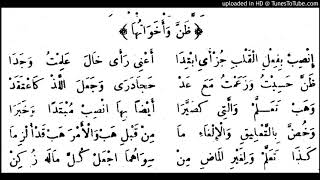 uploaded in HD @ TunesToTube.com
﴿ ظَنَّ وَأَخَوَاتُهَا ﴾
اِنْصِبْ بِفِعْلِ الْقَلْبِ جُزْأَيِ ابْتِدَا أَعْنِي رَأَى خَالَ عَلِمْتُ وَجَدَا
ظَنَّ حَسِبْتُ وَزَعَمْتُ مَعَ عَدْ حَجَا دَرَى وَجَعَلَ اللَّذْ كَاعْتَقَدْ
وَهَبْ تَعَلَّمْ وَالَّتِي كَصَيَّرَا أَيْضًا بِهَا انْصِبْ مُبْتَدًا وَخَبَرَا
وَخُصَّ بِالتَّعْلِيقِ وَالْإِلْغَاءِ مَا مِنْ قَبْلِ هَبْ وَالْأَمْرَ هَبْ قَدْ أُلْزِمَا
كَذَا تَعَلَّمْ وَلِغَيْرِ الْمَاضِ مِنْ سِوَاهُمَا اجْعَلْ كُلَّ مَا لَهُ زُكِنْ